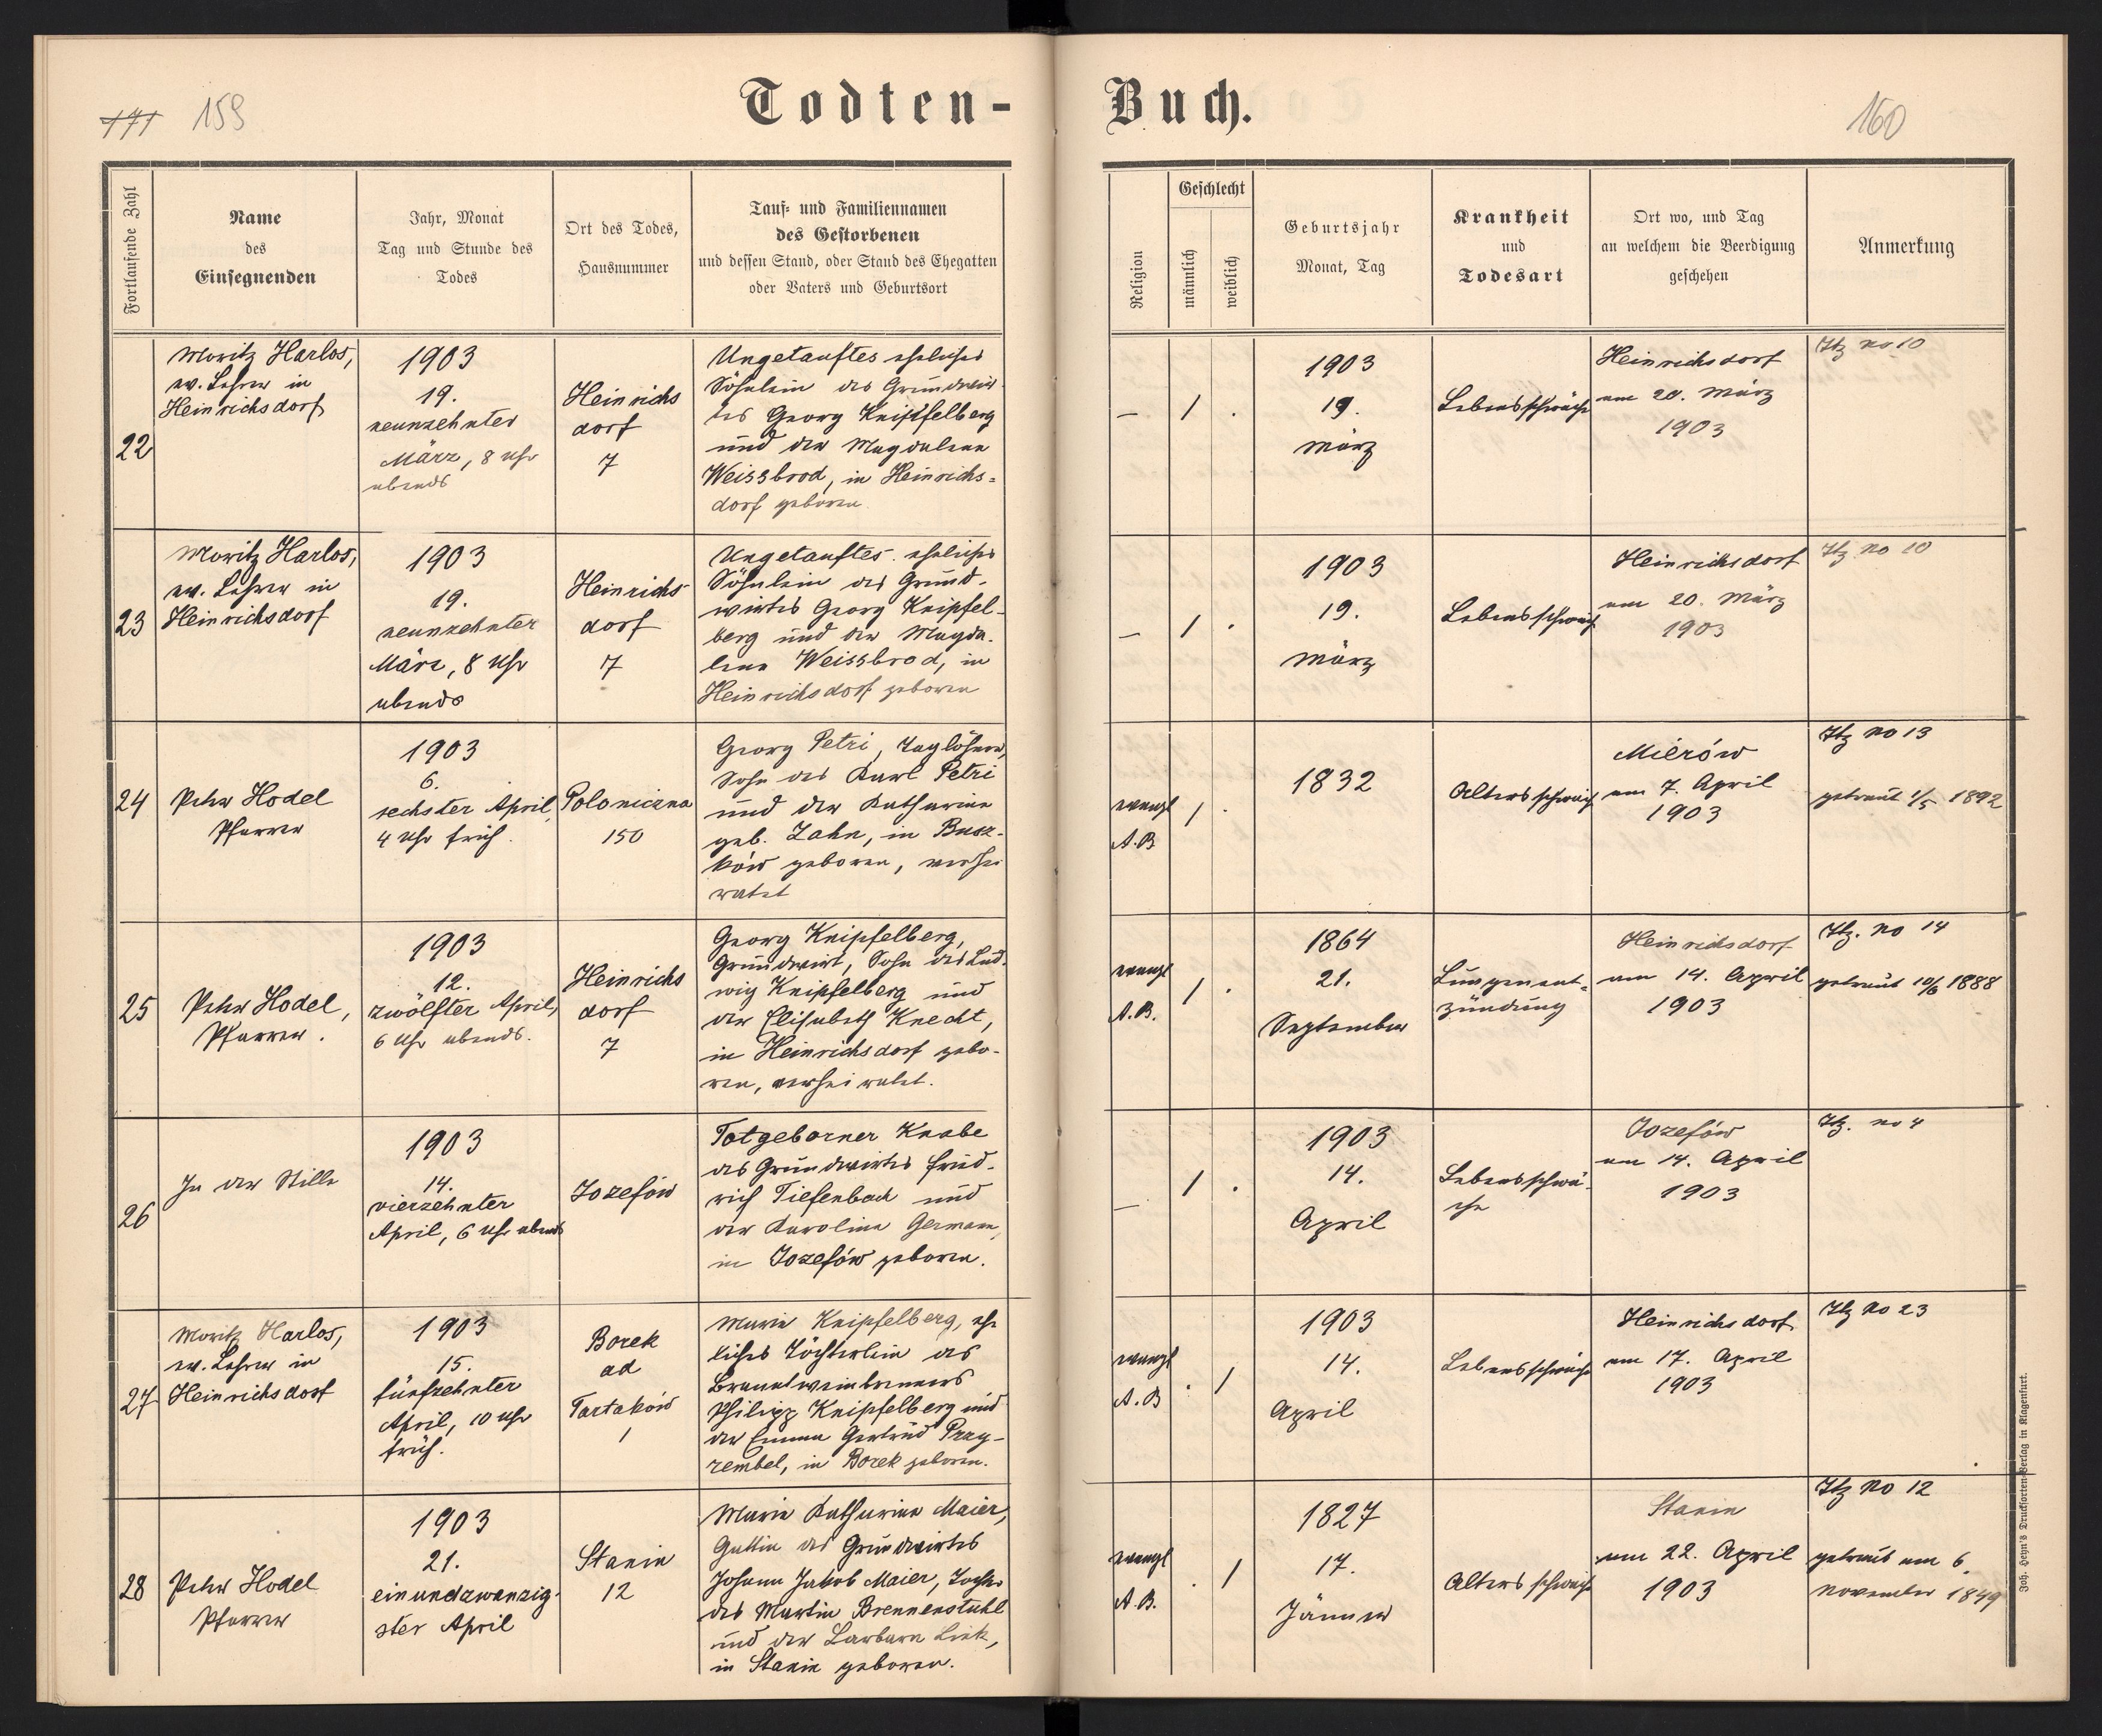 Todten-
171 159
Fortlaufende Zahl
Name
des
Einsegnenden
Jahr, Monat
Tag und Stunde des
Todes
Ort des Todes,
Hausnummer
Tauf- und Familiennamen
des Gestorbenen
und dessen Stand, oder Stand des Ehegatten
oder Vaters und Geburtsort
22
Moritz Harlos,
ev. Lehrer in
Heinrichsdorf
1903
19.
neunzehnter
März, 8 Uhr
abends
Heinrichs
dorf
7
Ungetauftes eheliches
Söhnlein des Grundwir-
tes Georg Knipfelberg
und der Magdalena
Weissbrod, in Heinrichs=
dorf geboren
23
Moritz Harlos,
ev. Lehrer in
Heinrichsdorf
1903
19.
neunzehnter
März, 8 Uhr
abends
Heinrichs-
dorf
7
Ungetauftes eheliches
Söhnlein des Grund-
wirtes Georg Knipfel-
berg und der Magda-
lena Weissbrod, in
Heinrichsdorf geboren
24
Peter Hodel
Pfarrer
1903
6.
sechster April,
4 Uhr früh.
Poloniczna
150
Georg Petri, Taglöhner,
Sohn des Karl Petri
und der Katharina
geb. Zahn, in Busz-
ków geboren, verhei
ratet
25
Peter Hodel,
Pfarrer.
1903
12.
zwölfter April,
6 Uhr abends.
Heinrichs
dorf
7
Georg Knipfelberg,
Grundwirt, Sohn des Lud-
wig Knipfelberg und
der Elisabeth Knecht,
in Heinrichsdorf gebo-
ren, verheiratet.
26
In der Stille
1903
14.
vierzehnter
April, 6 Uhr abends
Jozefów
Totgeborner Knabe
des Grundwirtes Fried-
rich Tiefenbach und
der Karolina Germann,
in Jozefów geboren.
27
Moritz Harlos,
ev. Lehrer in
Heinrichsdorf
1903
15.
fünfzehnter
April, 10 Uhr
früh.
Borek
ad
Tartaków
1
Maria Knipfelberg, ehe
liches Töchterlein des
Branntweinbrenners
Philipp Knipfelberg und
der Emma Gertrud Przy-
rembel, in Borek geboren.
28
Peter Hodel
Pfarrer
1903
21.
einundzwanzig-
ster April
Stanin
12
Maria Katharina Maier,
Gattin des Grundwirtes
Johann Jakob Maier, Tochter
des Martin Brennenstuhl
und der Barbara Link,
in Stanin geboren.
Buch.
160
Religion
Geschlecht
männlich
weiblich
Geburtsjahr
Monat, Tag
Krankheit
und
Todesart
Ort wo, und Tag
an welchem die Beerdigung
geschehen
Anmerkung
— 1 .
1903
19.
März
Lebensschwäche
Heinrichsdorf
am 20. März
1903
Itz no 10
— 1 .
1903
19.
März
Lebensschwäche
Heinrichsdorf
am 20. März
1903
Itz no 10
evangl
A.B
1 .
1832
Altersschwäche
Mierów
am 7. April
1903
Itz no 13
getraut 1/5 1892
evangl
A.B.
1 .
1864
21.
September
Lungenent-
zündung
Heinrichsdorf
am 14. April
1903
Itz. no 14
getraut 10/6 1888
— 1 .
1903
14.
April
Lebensschwä-
che
Jozefów
am 14. April
1903
Itz. no 4
evangl
A.B
. 1
1903
14.
April
Lebensschwäche
Heinrichsdorf
am 17. April
1903
Itz no 23
evangl
A.B.
. 1
1827
17.
Jänner
Altersschwäche
Stanin
am 22. April
1903
Itz no 12
getraut am 6.
November 1849
Joh. Heyn's Druckforten-Verlag in Klagenfurt.